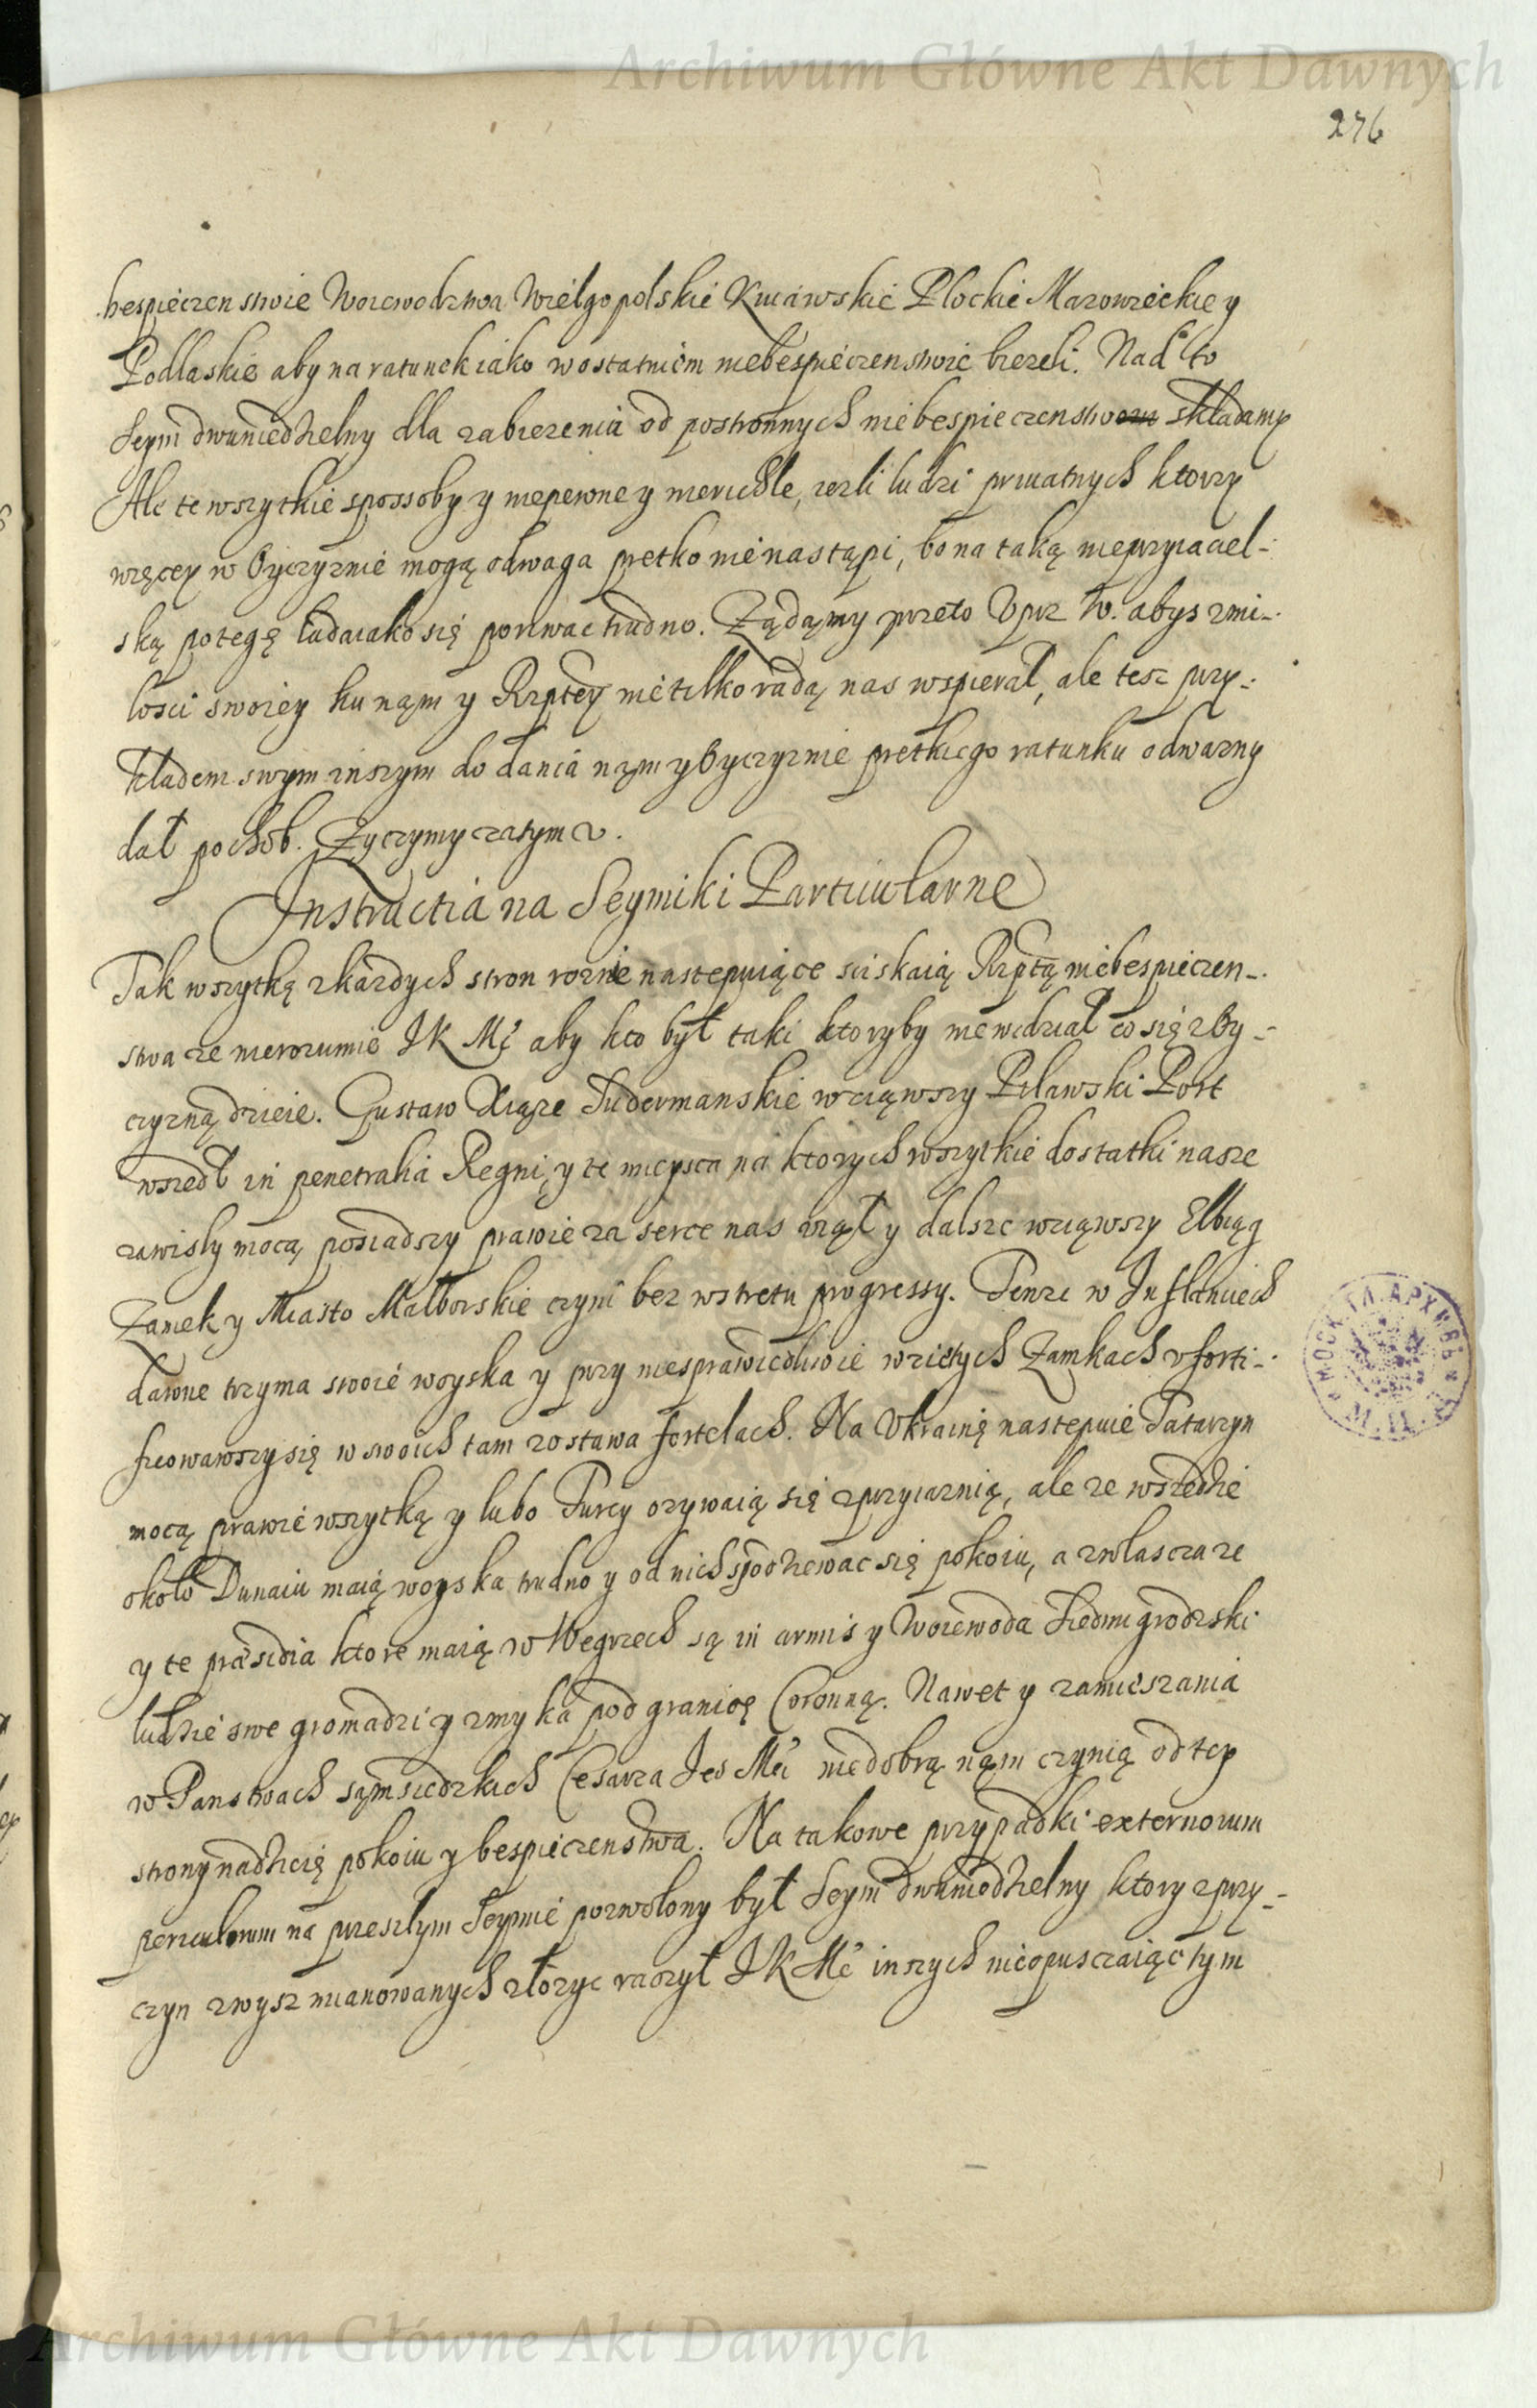 Archiwum Główne Akt Dawnych
276
bespieczenstwie Woiewodztwa Wielgopolskie Kuiawskie Plockie Mazowieckie y
Podlaskie aby na ratunek iako w ostatniem niebespieczenstwie biezeli. Nad to
Seym dwuniedzielny dla zabiezenia od postronnych niebespieczenstw składamy
Ale te wszytkie spossoby y niepewne y nierichle, iezli ludzi priuatnych ktorzy
więcey w Oyczyznie mogą odwaga pretko nie nastąpi, bo na taką nieprzyiaciel-
ską potegę ladaiako się porwac trudno. Ządąmy przeto Vprz W. abys z mi-
losci swoiey ku nąm y Rzptey nie tilko radą nas wspierał, ale tesz przy-
kładem swym inszym do dania nąm y Oyczyznie pretkiego ratunku odwazny
dał pochob. Zyczymy zatym
Instructia na Seymiki Particularne
Tak wszytką z kazdych stron roznie nastepuiące sciskaią Rzptą niebespieczen-
stwa ze nierozumie JK Mć aby kto był taki ktoryby niewidział co się z Oy-
czyzną dzieie. Gustaw Xiąze Sudermanskie wziąwszy Pilawski Port
wszedł in penetralia Regni, y te mieysca na ktorych wszytkie dostatki nasze
zawisły mocą posiadszy prawie za serce nas wziął y dalsze wziąwszy Elbiąg
Zamek y Miasto Malborskie czyni bez wstretu progressy. Tenze w Inflanciech
dawne trzyma swoie woyska y przy niesprawiedliwie wzietych Zamkach vforti-
ficowawszy się w swoich tam zostawa fortelach. Na Vkrainę nastepuie Tatarzyn
mocą prawie wszytką y lubo Turcy ozywaią się z przyiaznią, ale ze wszedzie
około Dunaiu maią woyska trudno y od nich spodziewac się pokoiu, a zwlascza ze
y te præsidia ktore maią w Wegrzech są in armis y Woiewoda Siedmigrodzski
ludzie swe gromadzi y zmyka pod granicę Coronną. Nawet y zamieszania
w Panstwach sąmsiedzkich Cesarza Jeo Mći niedobrą nąm czynią od tey
strony nadzieię pokoiu y bespieczenstwa. Na takowe przypadki externorum
periculorum na przeszlym Seymie pozwolony był Seym dwuniedzielny ktory z przy-
czyn zwysz mianowanych złozyc raczył JK Mć inszych nieopusczaiąc tym
Archiwum Główne Akt Dawnych